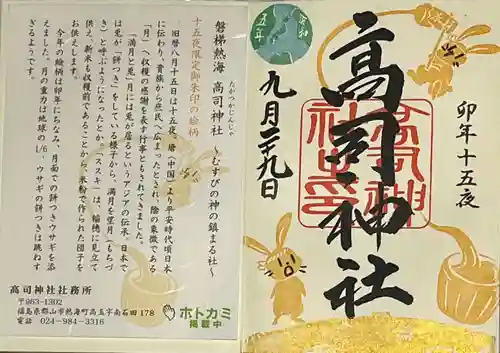 磐梯熱海 高司神社 ～むすびの神の鎮まる社～
たかつかじんじゃ
十五夜限定御朱印の絵柄
旧暦八月十五日は十五夜。唐（中国）より平安時代頃日本
に伝わり、貴族から庶民へ広まったとされ、陰の象徴である
「月」へ収穫の感謝を表す行事ともされてきました。
「満月と兎」月には兎が居るというアジアの伝承。日本で
は兎が「餅つき」をしている様子から、満月を望月（もちづ
き）と呼ぶようになったとか。「ススキ」は、稲穂に見立て
お供え、新米も収穫前であることから、米粉で作られた団子を
お供えします。
今年の絵柄は卯年にちなみ、月面での餅つきウサギを添
えました。月の重力は地球の1/6、ウサギの餅つきは跳ねす
ぎるようです。
高司神社社務所
〒963-1302
福島県郡山市熱海町高玉字南石田 178
電話 024-984-3316
ホトカミ
掲載中
卯年十五夜
高司神社
高司神
社之印
令和
五年
九月二十九日